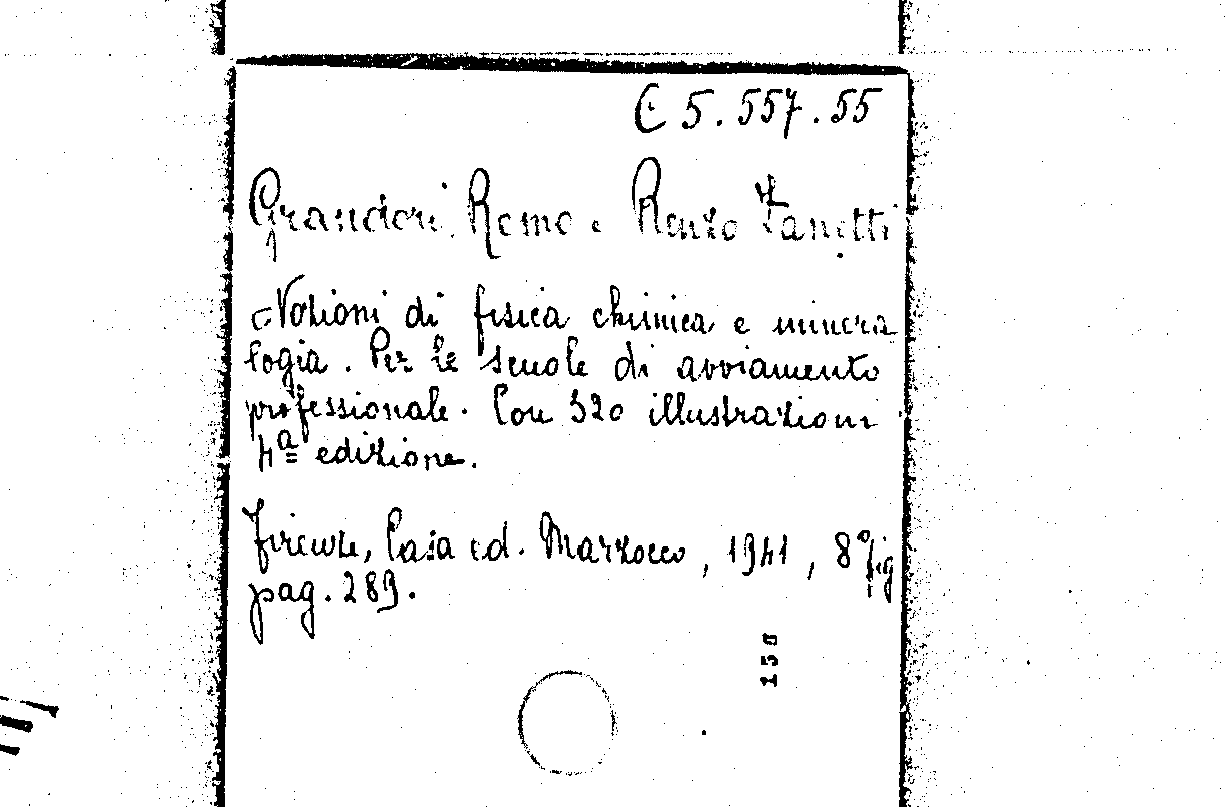 C 5.557.55
Grandori Remo e Renzo Zanetti
Nozioni di fisica chimica e minera
logia. Per le scuole di avviamento
professionale. Con 320 illustrazioni
4ª edizione.
Firenze, Casa ed. Marzocco, 1941, 8° fig
pag. 289.
150